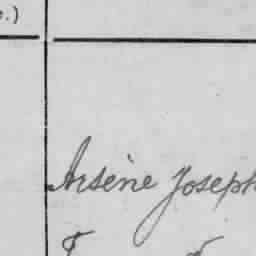 .)
Arsène Joseph